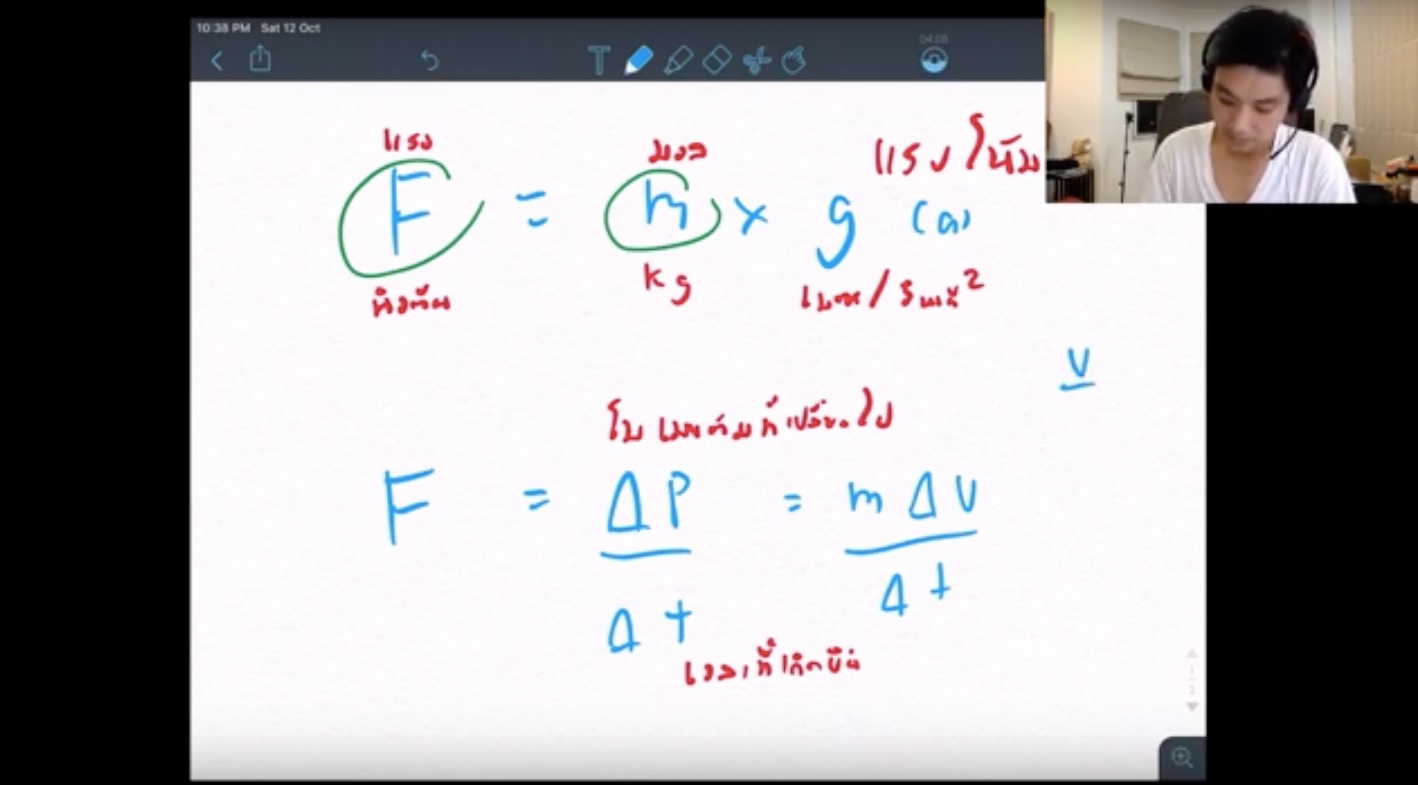 10:38 PM Sat 12 Oct
04:05
T
แรง มวล แรงโน้ม
F = m × g (a)
นิวตัน kg เมตร/วินาที²
v
โมเมนตัมที่เปลี่ยนไป
F = ΔP = m Δv
Δt Δt
เวลาที่เกิดขึ้น
1
2